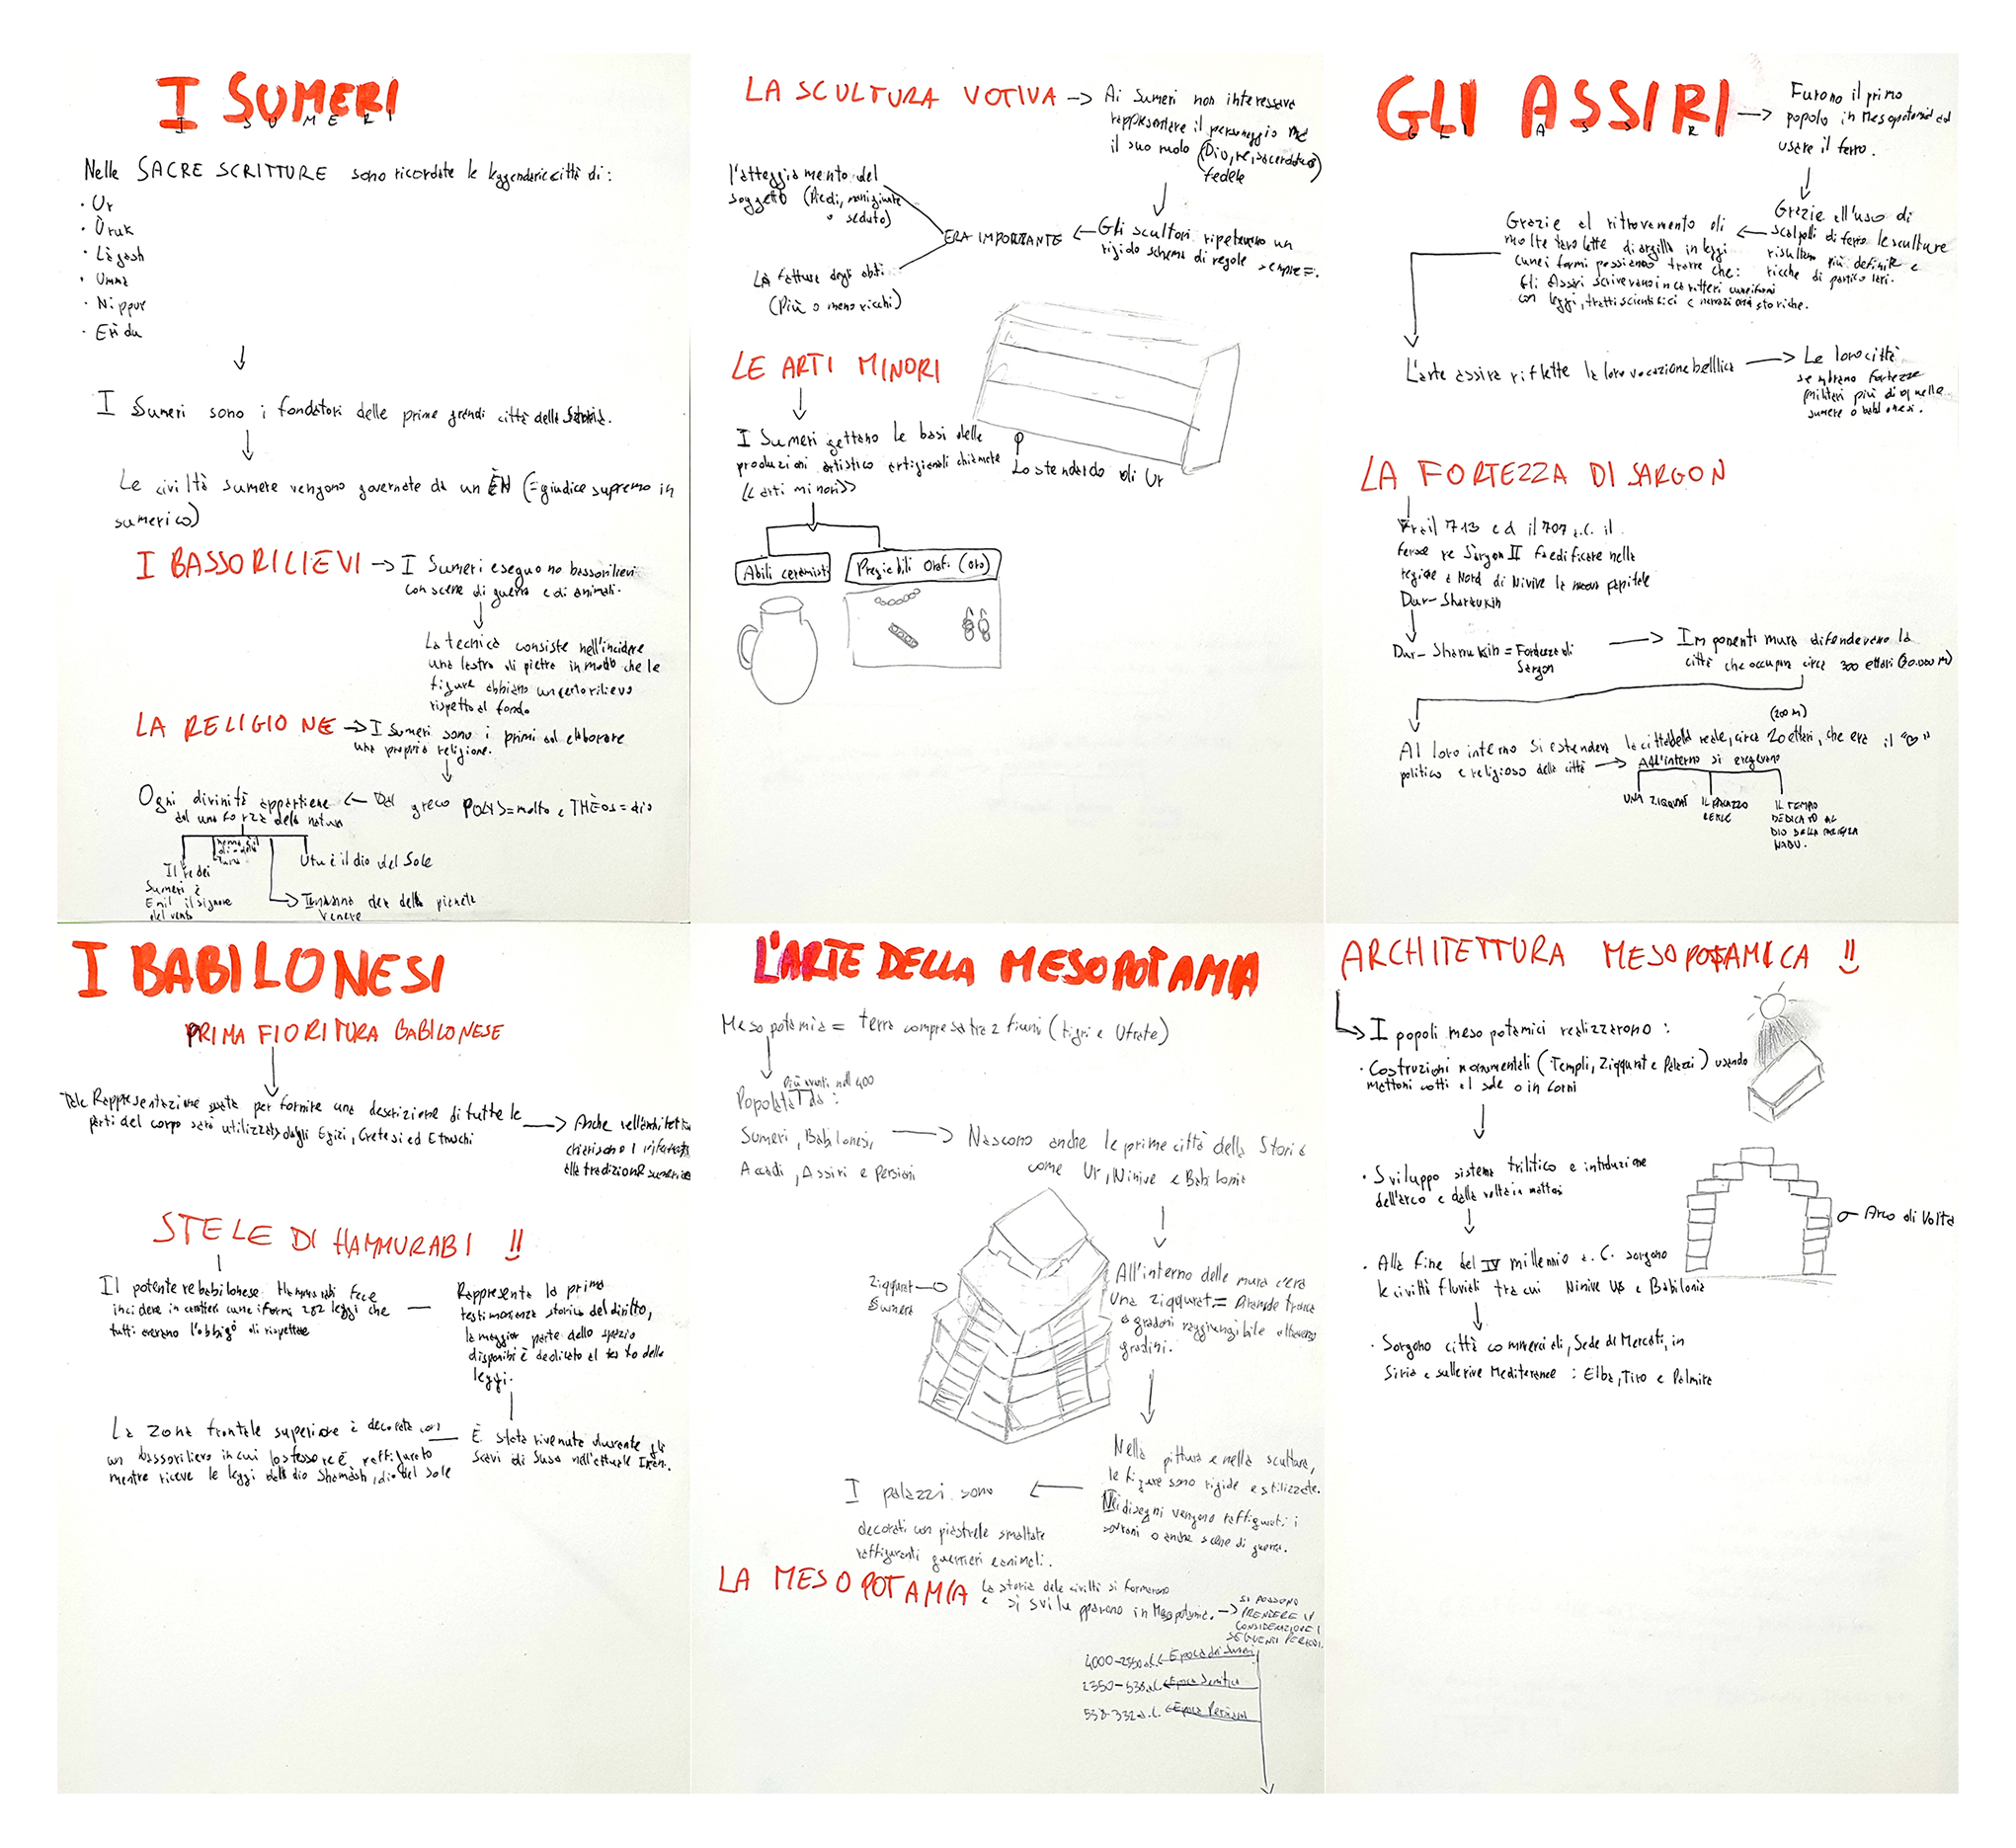 I SUMERI
I SUMERI
Nelle SACRE SCRITTURE sono ricordate le leggendarie città di:
· Ur
· Ùruk
· Làgash
· Umma
· Nippur
· Eridu
I Sumeri sono i fondatori delle prime grandi città della Storia.
Le civiltà sumere vengono governate da un ÈN (=giudice supremo in
sumerico)
I BASSORILIEVI → I Sumeri eseguono bassorilievi
con scene di guerra e di animali.
La tecnica consiste nell'incidere
una lastra di pietra in modo che le
figure abbiano un certo rilievo
rispetto al fondo.
LA RELIGIONE → I Sumeri sono i primi ad elaborare
una propria religione.
Ogni divinità appartiene ← Dal greco POLYS=molto e THÈOS=dio
ad una forza della natura
Il re dei
Sumeri è
Enlil il signore
del vento
Utu è il dio del Sole
→ Inanna dea della pianeta
Venere
LA SCULTURA VOTIVA → Ai Sumeri non interessava
rappresentare il personaggio ma
il suo ruolo (Dio, re, sacerdote o
fedele
l'atteggiamento del
soggetto (Piedi, mani giunte
o seduto)
ERA IMPORTANTE ← Gli scultori ripetevano un
rigido schema di regole sempre =.
LA fattura degli abiti
(Più o meno ricchi)
LE ARTI MINORI
I Sumeri gettano le basi delle
produzioni artistico artigianali chiamate
<<arti minori>>
Lo stendardo di Ur
Abili ceramisti
Pregiabili Orafi (oro)
GLI ASSIRI → Furono il primo
GLI ASSIRI
popolo in Mesopotamia ad
usare il ferro.
Grazie all'uso di
scalpelli di ferro le sculture
risultano più definite e
ricche di particolari.
Grazie al ritrovamento di
molte tavolette di argilla in leggi
cuneiformi possiamo trarre che:
Gli Assiri scrivevano in caratteri cuneiformi
con leggi, tratti scientifici e narrazioni storiche.
L'arte assira riflette la loro vocazione belllica → Le loro città
sembrano fortezze
militari più di quelle
sumere o babilonesi.
LA FORTEZZA DI SARGON
Fra il 713 ed il 707 a.C. il
feroce re Sargon II fa edificare nella
regione a Nord di Ninive la nuova capitale
Dur-Sharrukin
Dur-Sharrukin = Fortezza di
Sargon
→ Imponenti mura difendevano la
città che occupava circa 300 ettari (30.000 M)
(200 M)
Al loro interno si estendeva la cittadella reale, circa 20 ettari, che era il "♡"
politico e religioso della città → All'interno si ergevano
UNA ZIQQURAT
IL PALAZZO
REALE
IL TEMPO
DEDICATO AL
DIO DELLA
NABU.
I BABILONESI
PRIMA FIORITURA BABILONESE
Tale Rappresentazione usata per fornire una descrizione di tutte le
parti del corpo sarà utilizzata dagli Egizi, Cretesi ed Etruschi
→ Anche nell'architettura
alla tradizione sumerica
STELE DI HAMMURABI !!
Il potente re babilonese Hammurabi fece
incidere in caratteri cuneiformi 282 leggi che
tutti avevano l'obbligo di rispettare
Rappresenta la prima
testimonianza storica del diritto,
la maggior parte dello spazio
disponibi è dedicato al testo delle
leggi.
È stata rivenuta durante gli
scavi di Susa nell'attuale Iran.
La zona frontale superiore è decorata con
un bassorilievo in cui lo stesso re è raffigurato
mentre riceve le leggi dal dio Shamash, dio del sole
L'ARTE DELLA MESOPOTAMIA
Mesopotamia = terra compresa tra 2 fiumi (Tigri e Ufrate)
più avanti nel 400
Popolata da:
Sumeri, Babilonesi,
Accadi, Assiri e Persiani
→ Nascono anche le prime città della Storia
come Ur, Ninive e Babilonia
All'interno delle mura c'era
una ziqqurat = Grande
a gradoni raggiungibile attraverso
gradini.
Ziqqurat
Sumera
Nella pittura e nella scultura,
le figure sono rigide e stilizzate.
Nei disegni vengono raffigurati i
sovrani o anche scene di guerra.
I palazzi sono
decorati con piastrele smaltate
raffiguranti guerrieri e animali.
LA MESOPOTAMIA La storia dele civiltà si formarono
e si svilupparono in Mesopotamia. → SI POSSONO
PRENDERE IN
CONSIDERAZIONE I
SEGUENTI PERIODI.
4000-2350 a.C. ← Epoca dei Sumeri
2350-538 a.C. ← Epoca Semitica
538-332 a.C. ← Epoca Persiana
ARCHITETTURA MESOPOTAMICA !!
→ I popoli mesopotamici realizzarono:
· Costruzioni monumentali (Templi, Ziqqurat e Palazzi) usando
mattoni cotti al sole o in forni
· Sviluppo sistema trilitico e introduzione
dell'arco e dalla volta in mattoni
Arco di Volta
· Alla fine del IV millennio a.C. sorgono
le civiltà fluviali tra cui Ninive Ur e Babilonia
· Sorgono città commerciali, Sede di Mercati, in
Siria e sulle rive Mediterranee : Elba, Tiro e Palmira